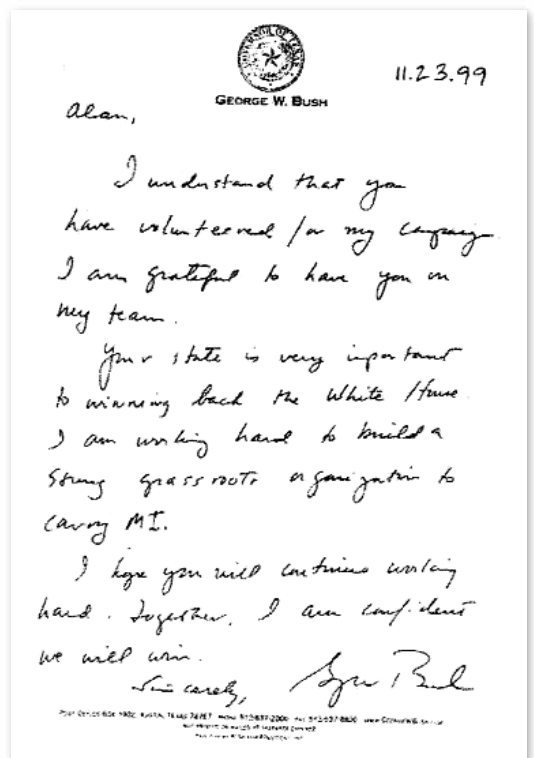 GOVERNOR OF TEXAS
GEORGE W. BUSH
11.23.99
Alan,
I understand that you
have volunteered for my campaign.
I am grateful to have you on
my team.
Your state is very important
to winning back the White House.
I am working hard to build a
strong grassroots organization to
carry MI.
I hope you will continue working
hard. Together, I am confident
we will win.
Sincerely, George Bush
POST OFFICE BOX 1902, AUSTIN, TEXAS 78767 PHONE 512/637-2000 FAX 512/637-8800
NOT PRINTED OR MAILED AT TAXPAYER EXPENSE